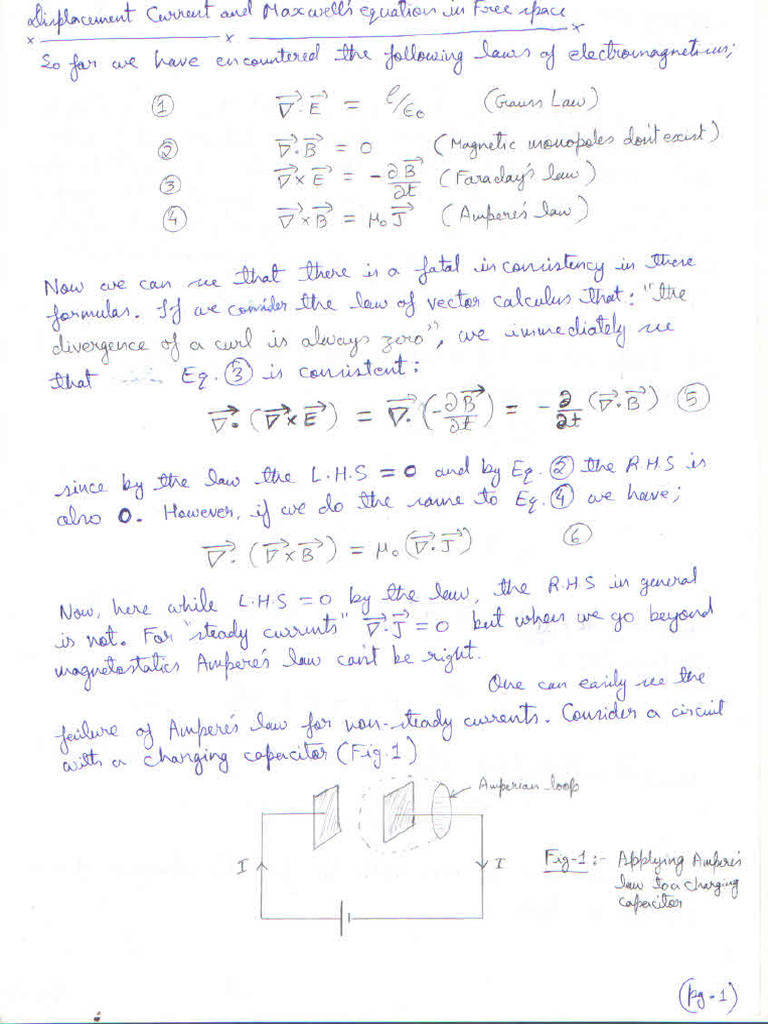 Displacement Current and Maxwell's equation in Free space
x x x
So far we have encountered the following laws of electromagnetism;
① ∇⃗·E⃗ = ρ/ε₀ (Gauss Law)
② ∇⃗·B⃗ = 0 (Magnetic monopoles don't exist)
③ ∇⃗×E⃗ = -∂B⃗/∂t (Faraday's law)
④ ∇⃗×B⃗ = μ₀J⃗ (Ampere's law)
Now we can see that there is a fatal inconsistency in these
formulas. If we consider the law of vector calculus that: "the
divergence of a curl is always zero", we immediately see
that Eq. ③ is consistent:
∇⃗·(∇⃗×E⃗) = ∇⃗·(-∂B⃗/∂t) = -∂/∂t(∇⃗·B⃗) ⑤
since by the law the L.H.S = 0 and by Eq. ② the R.H.S is
also 0. However, if we do the same to Eq. ④ we have;
∇⃗·(∇⃗×B⃗) = μ₀(∇⃗·J⃗) ⑥
Now, here while L.H.S = 0 by the law, the R.H.S in general
is not. For "steady currents" ∇⃗·J⃗ = 0 but when we go beyond
magnetostatics Ampere's law can't be right.
One can easily see the
failure of Ampere's law for non-steady currents. Consider a circuit
with a charging capacitor (Fig.1)
Amperian loop
I I
Fig-1 :- Applying Ampere's
law to a charging
capacitor
(pg-1)